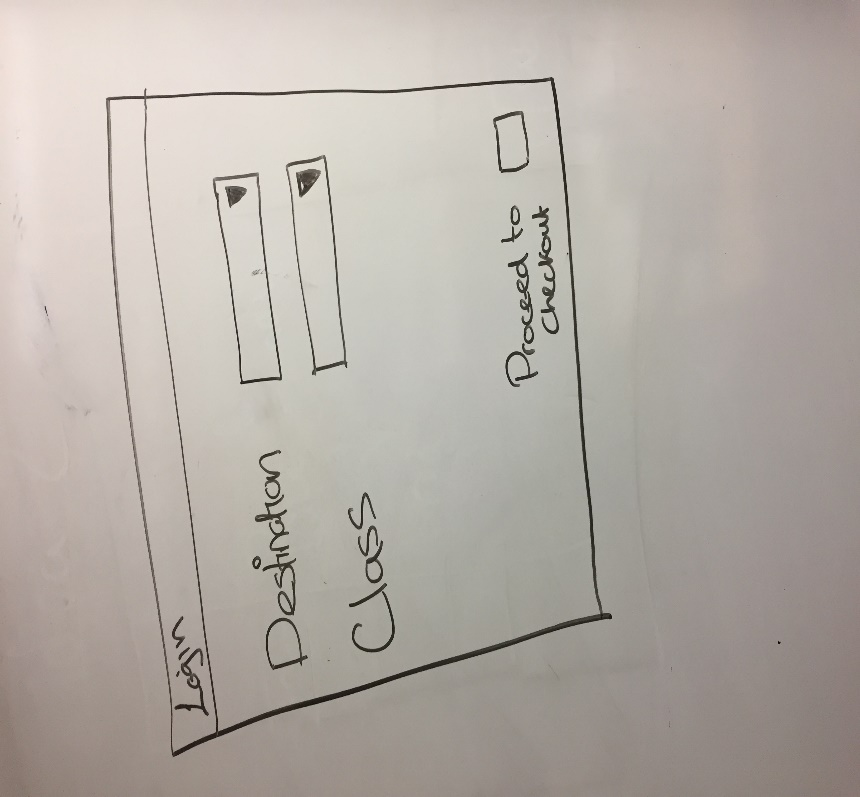 Login
Destination
Class
Proceed to
checkout